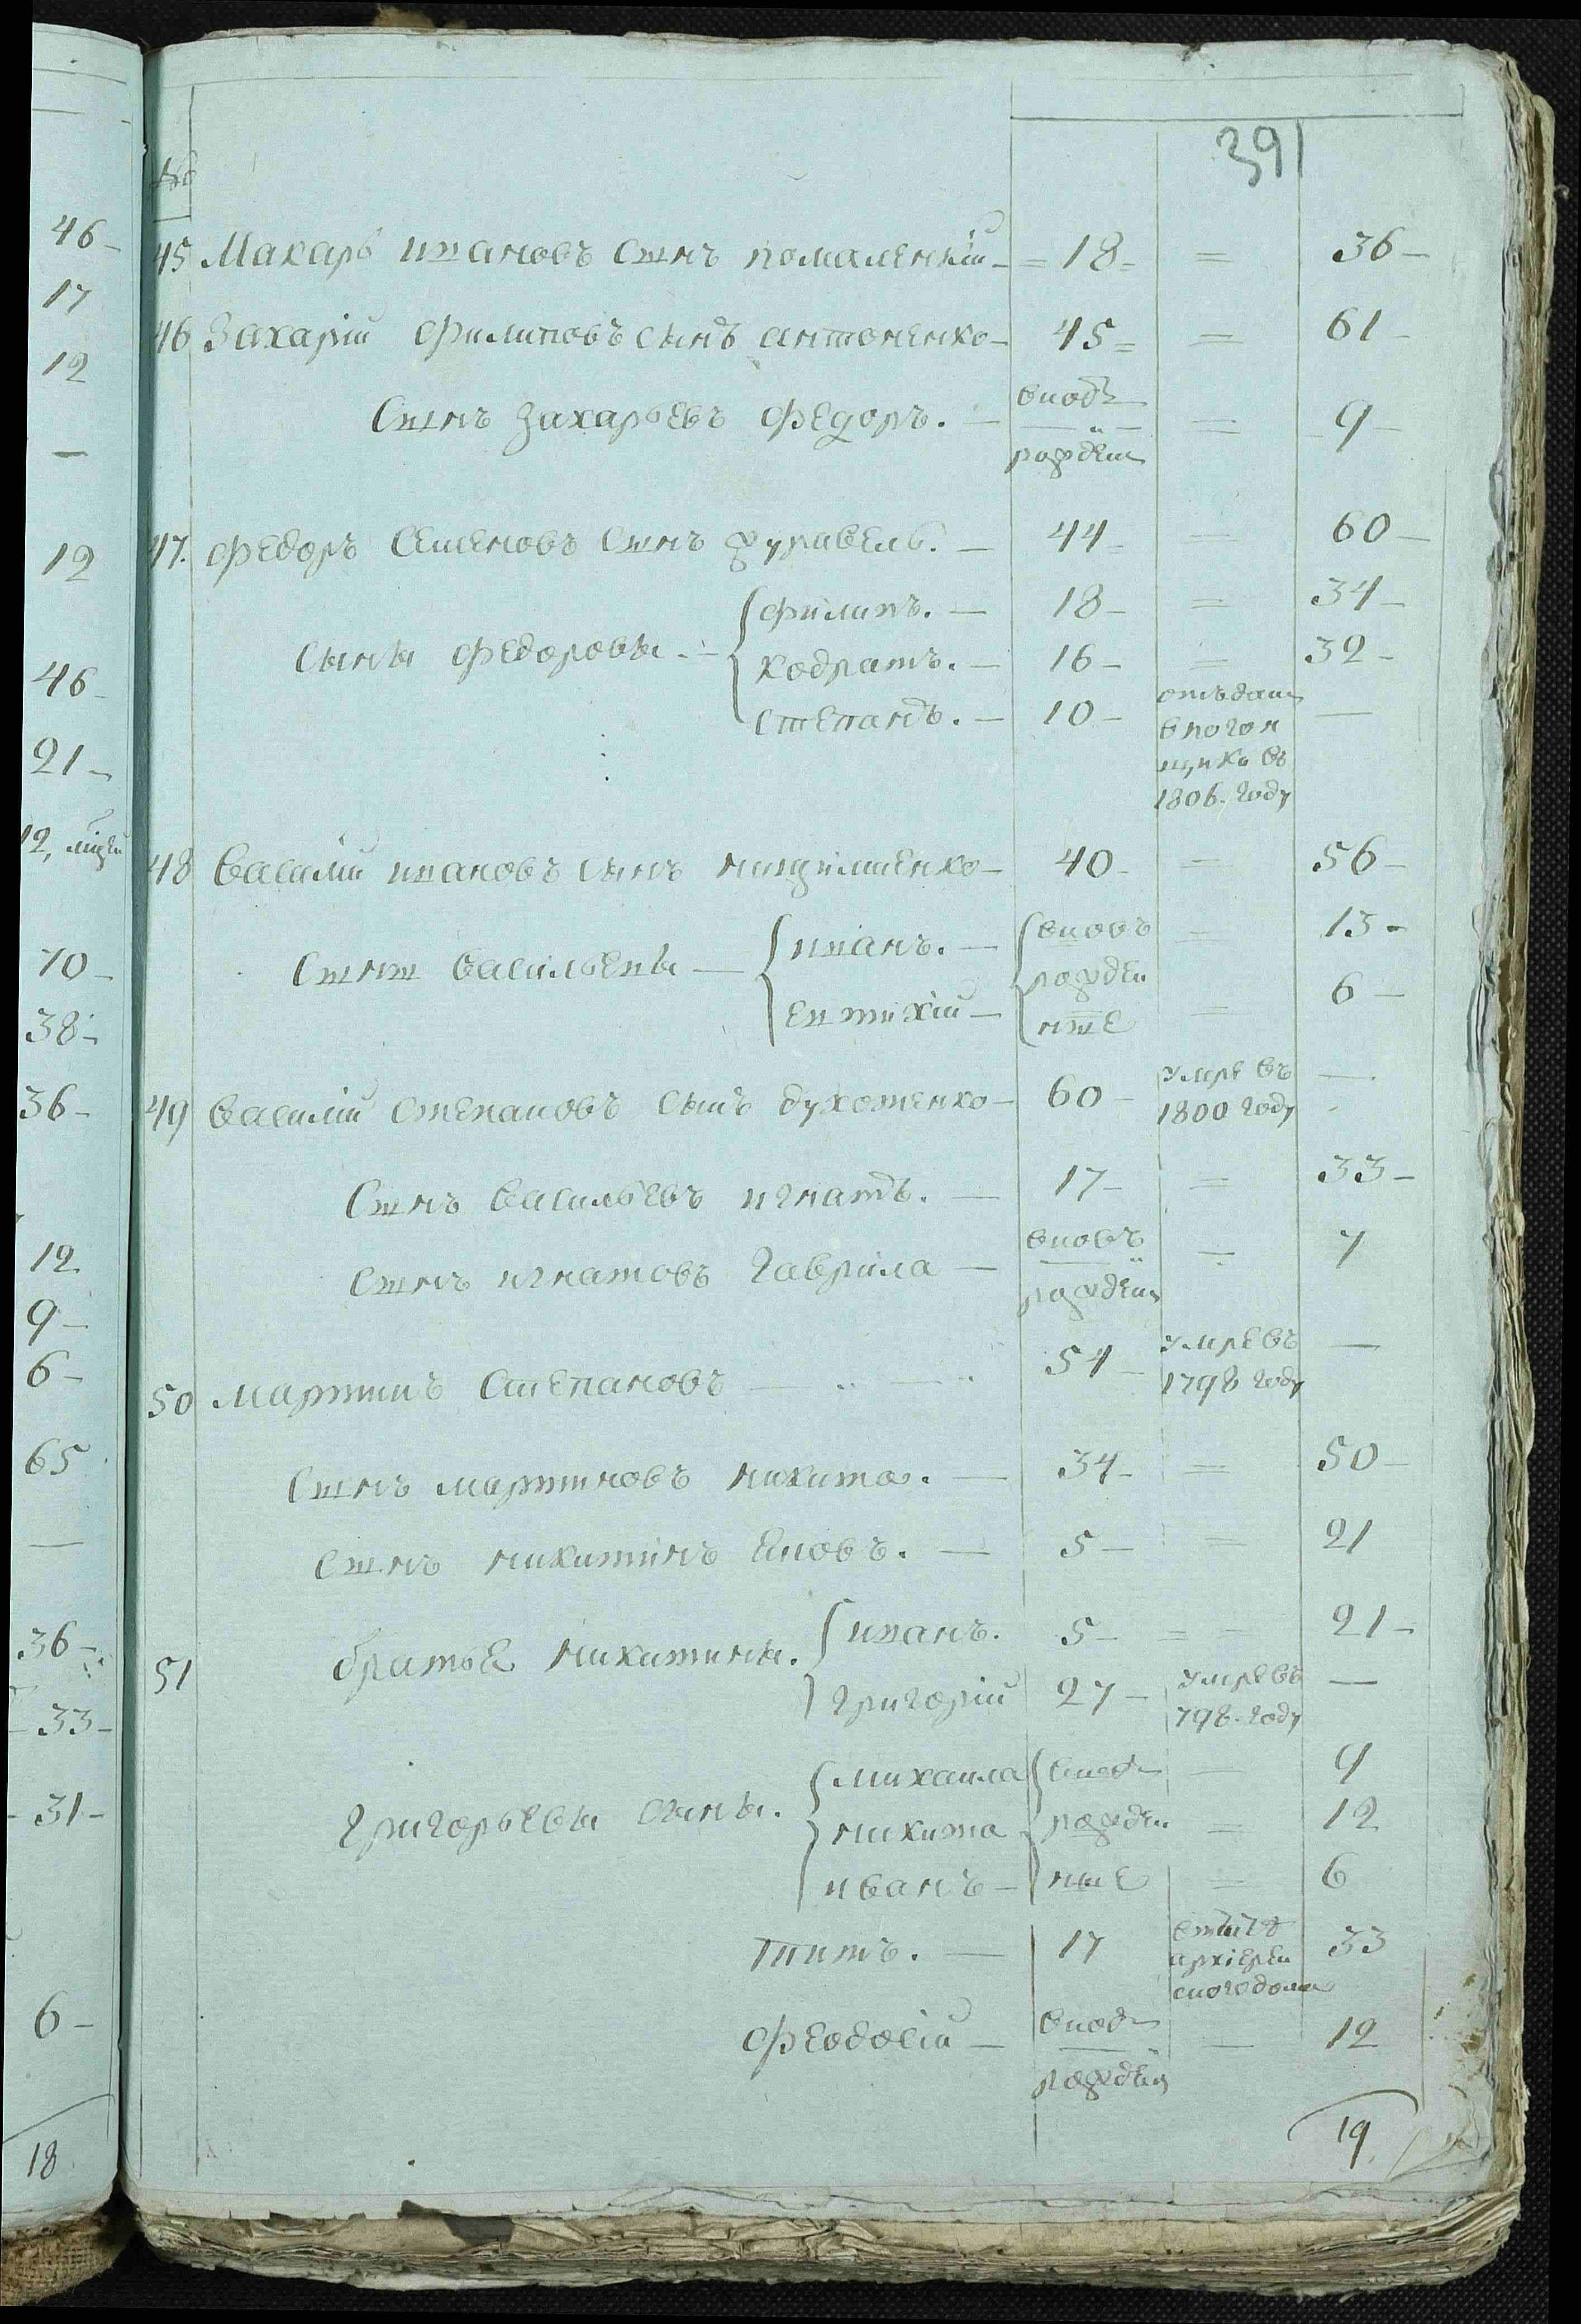 46-
17
12
—
12
46-
21-
12,
70-
38-
36-
12
9-
6-
65
—
36-
33-
31-
6-
18
391
№
45 Макаръ ивановъ сынъ помаленкій - 18 = 36-
46 Захарій филиповъ сынъ антоненко - 45 = 61-
Сынъ Захарьевъ федоръ. - вновь рожден = 9-
47. федоръ семеновъ сынъ журавель. - 44 = 60-
сыны федоровы. - { филипъ. - 18 - = 34-
кодратъ. - 16 - = 32-
степанъ. - 10 - отъдан
в погон
щики въ
1806. году —
48 Василій ивановъ сынъ - 40 - = 56-
сыны васильевы - { иванъ. - { вновъ = 13-
рожден
евтихій - ные = 6-
49 василій степановъ сынъ духотенко - 60 - умре въ
1800 году —
Сынъ васильевъ игнатъ. - 17 - = 33-
сынъ игнатовъ гаврила - вновъ рожден = 7
50 мартинъ степановъ - 54 - умре въ
1798 году —
сынъ мартиновъ никита. - 34 - = 50-
сынъ никитинъ - 5 - = 21
51 братье никитины. { иванъ. 5 - = 21-
григорій 27 - умре въ
798. году —
григорьевы сыны. { михаила { вновь — 9
никита рожден = 12
иванъ - ные = 6
титъ. - 17
архіерей
ского дома 33
феодосій - вновь рожден — 12
19